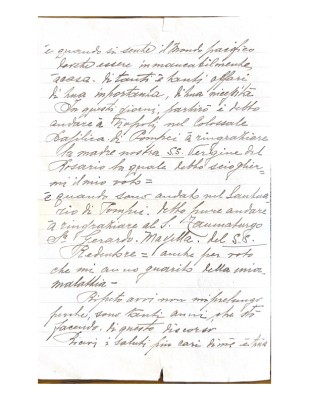 e quando si sente il Mondo pacifico
dovete essere immancabilmente
a casa. di tanti e tanti affari
di sua importanza, di sua
In questi giorni, partirò e detto
andare à Napoli nel Colossale
Basilica di Pompei à ringraziare
la madre nostra SS. Vergine del
Rosario la quale detto scioglier-
mi il mio voto =
e quando sono andato nel Santua-
rio di Pompei, detto pure andare
a ringraziare al S. Taumaturgo
Sn Gerardo. Majella. del SS.
Redentore = anche per voto
che mi anno guarito della mia
malattia =
Ripeto ora non mi prolungo
perché, sono tanti anni, che sto
facendo. di questo discorso
i saluti più cari di me